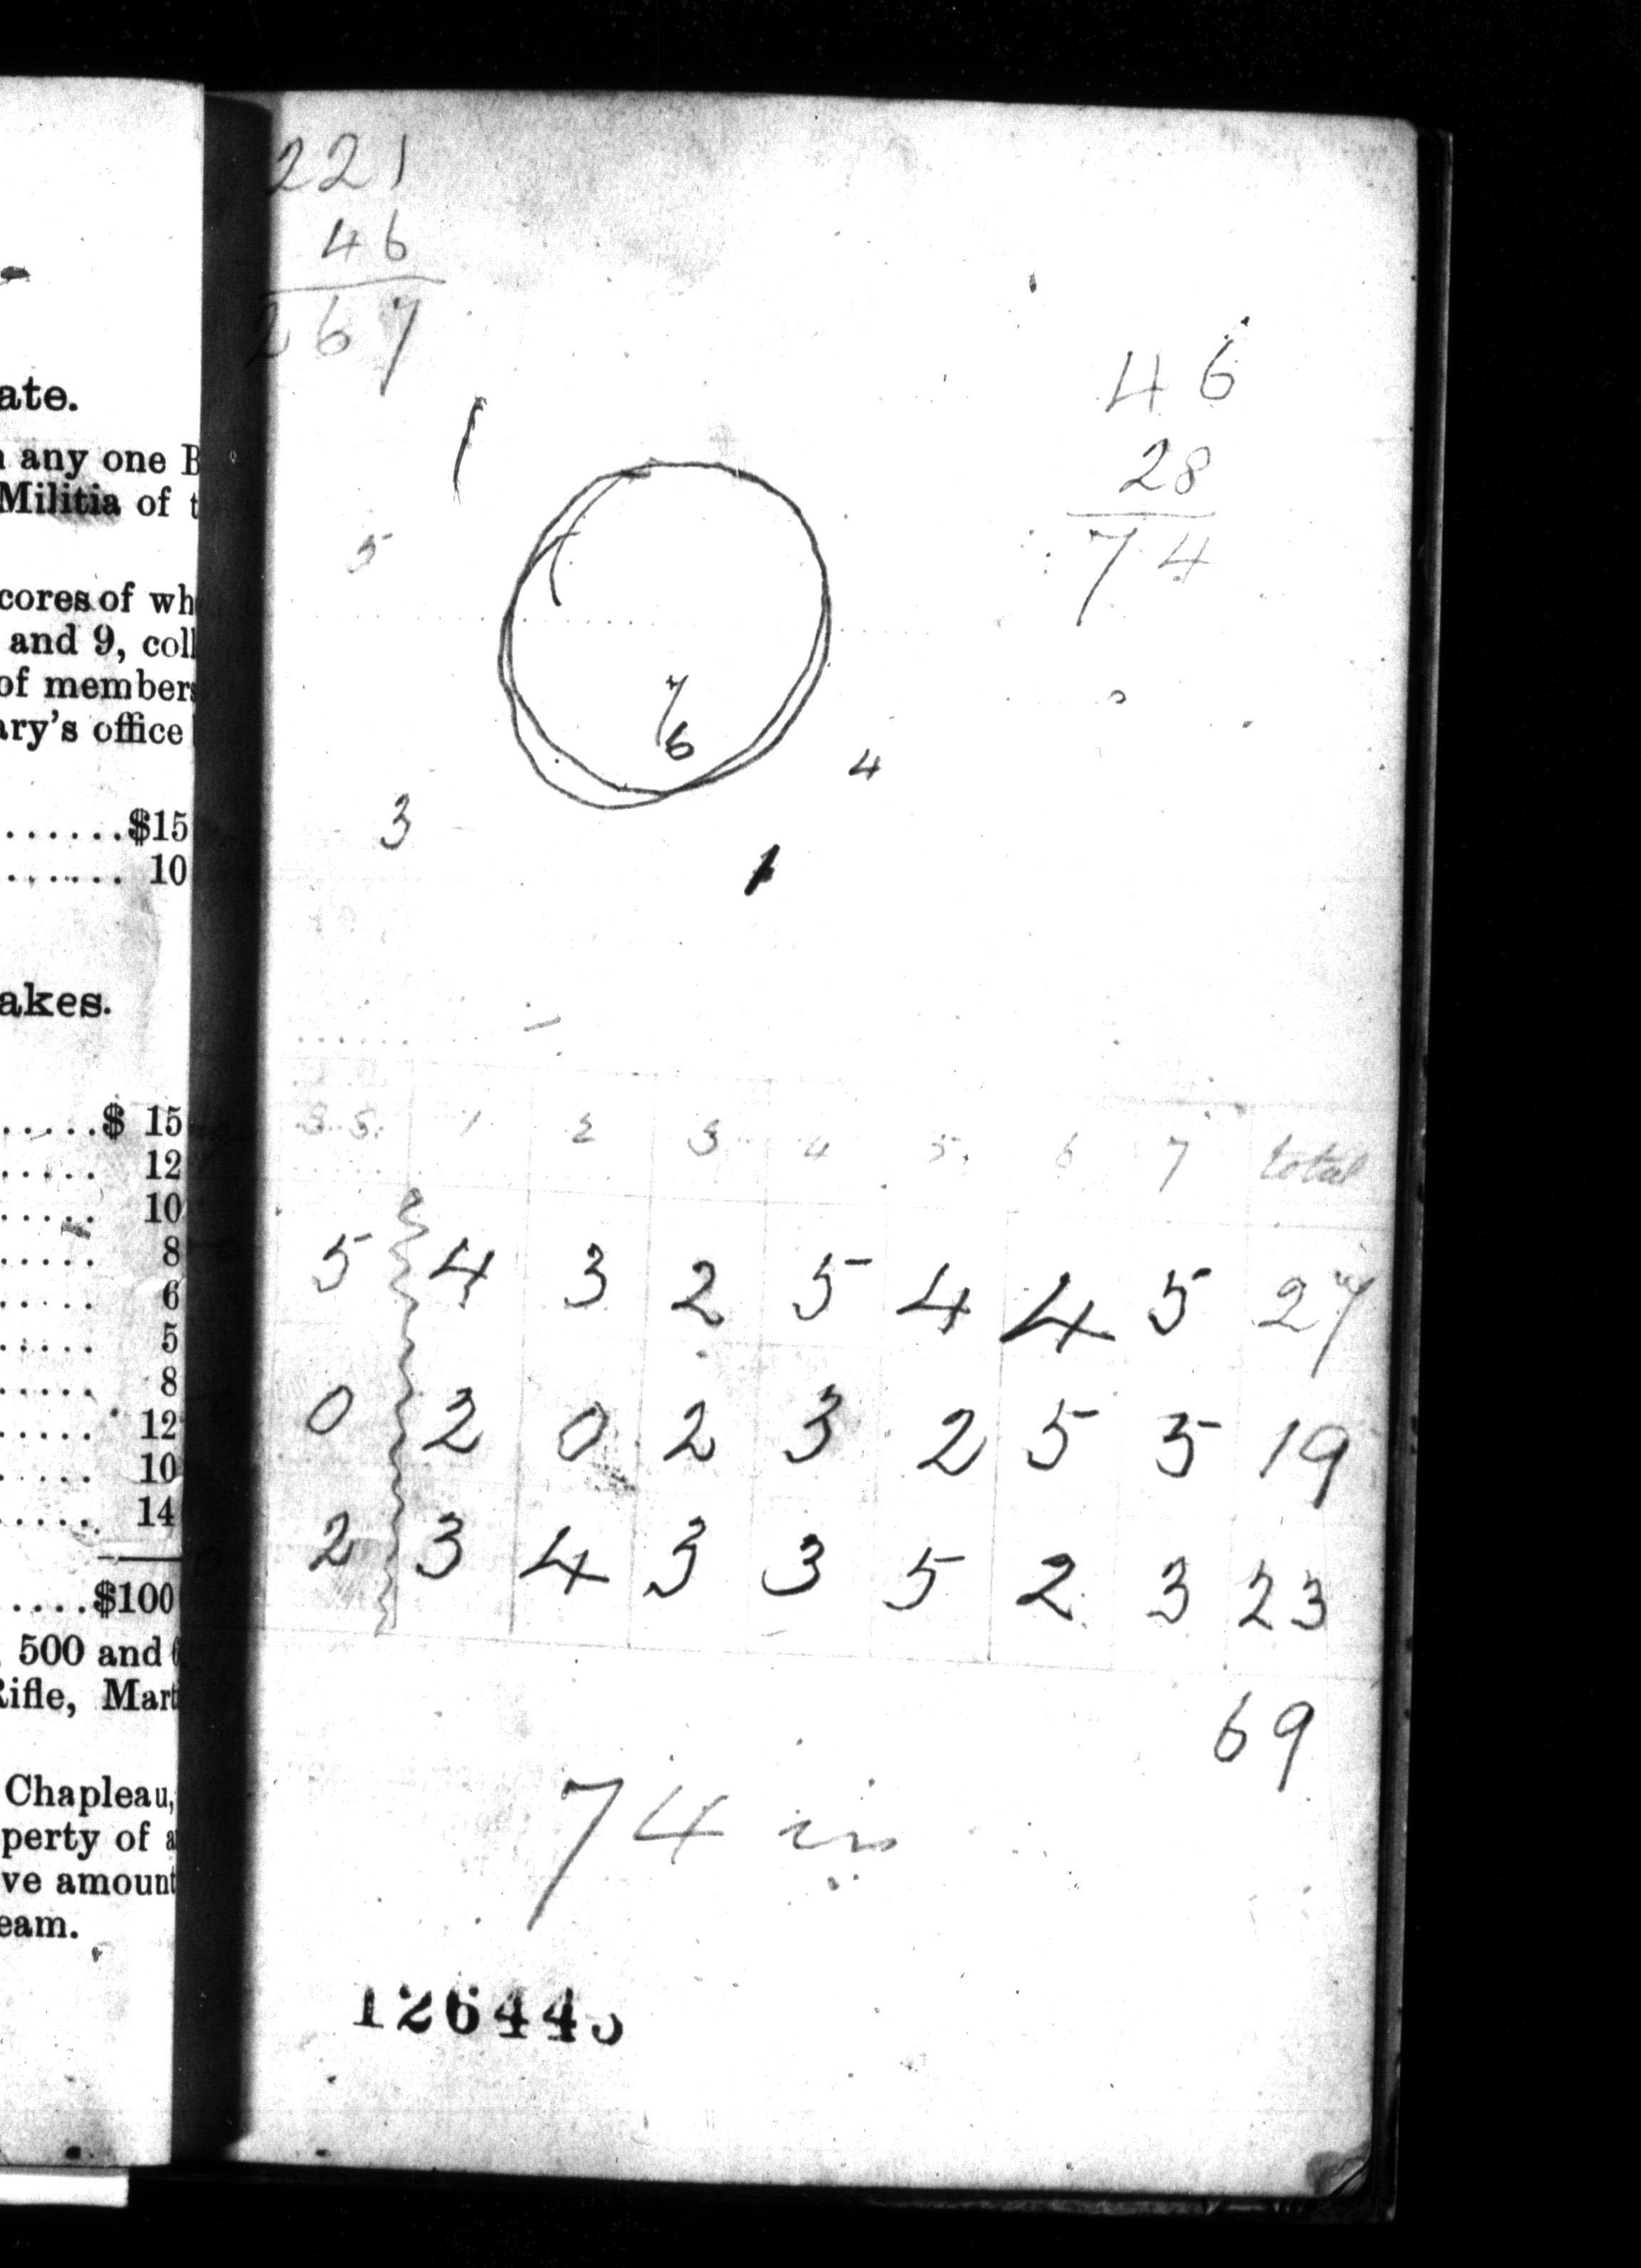 ate.
any one B
Militia of t
cores of wh
and 9, coll
of members
ary's office
......$15
...... 10
akes.
.....$ 15
..... 12
..... 10
..... 8
..... 6
..... 5
..... 8
..... 12
..... 10
..... 14
....$100
500 and
Rifle, Mart
Chapleau,
perty of a
ve amount
eam.
221
46
267
46
28
74
1
5
7
6
4
3
1
S.S. 1 2 3 4 5 6 7 total
5 4 3 2 5 4 4 5 27
0 2 0 2 3 2 5 5 19
2 3 4 3 3 5 2 3 23
69
74 in